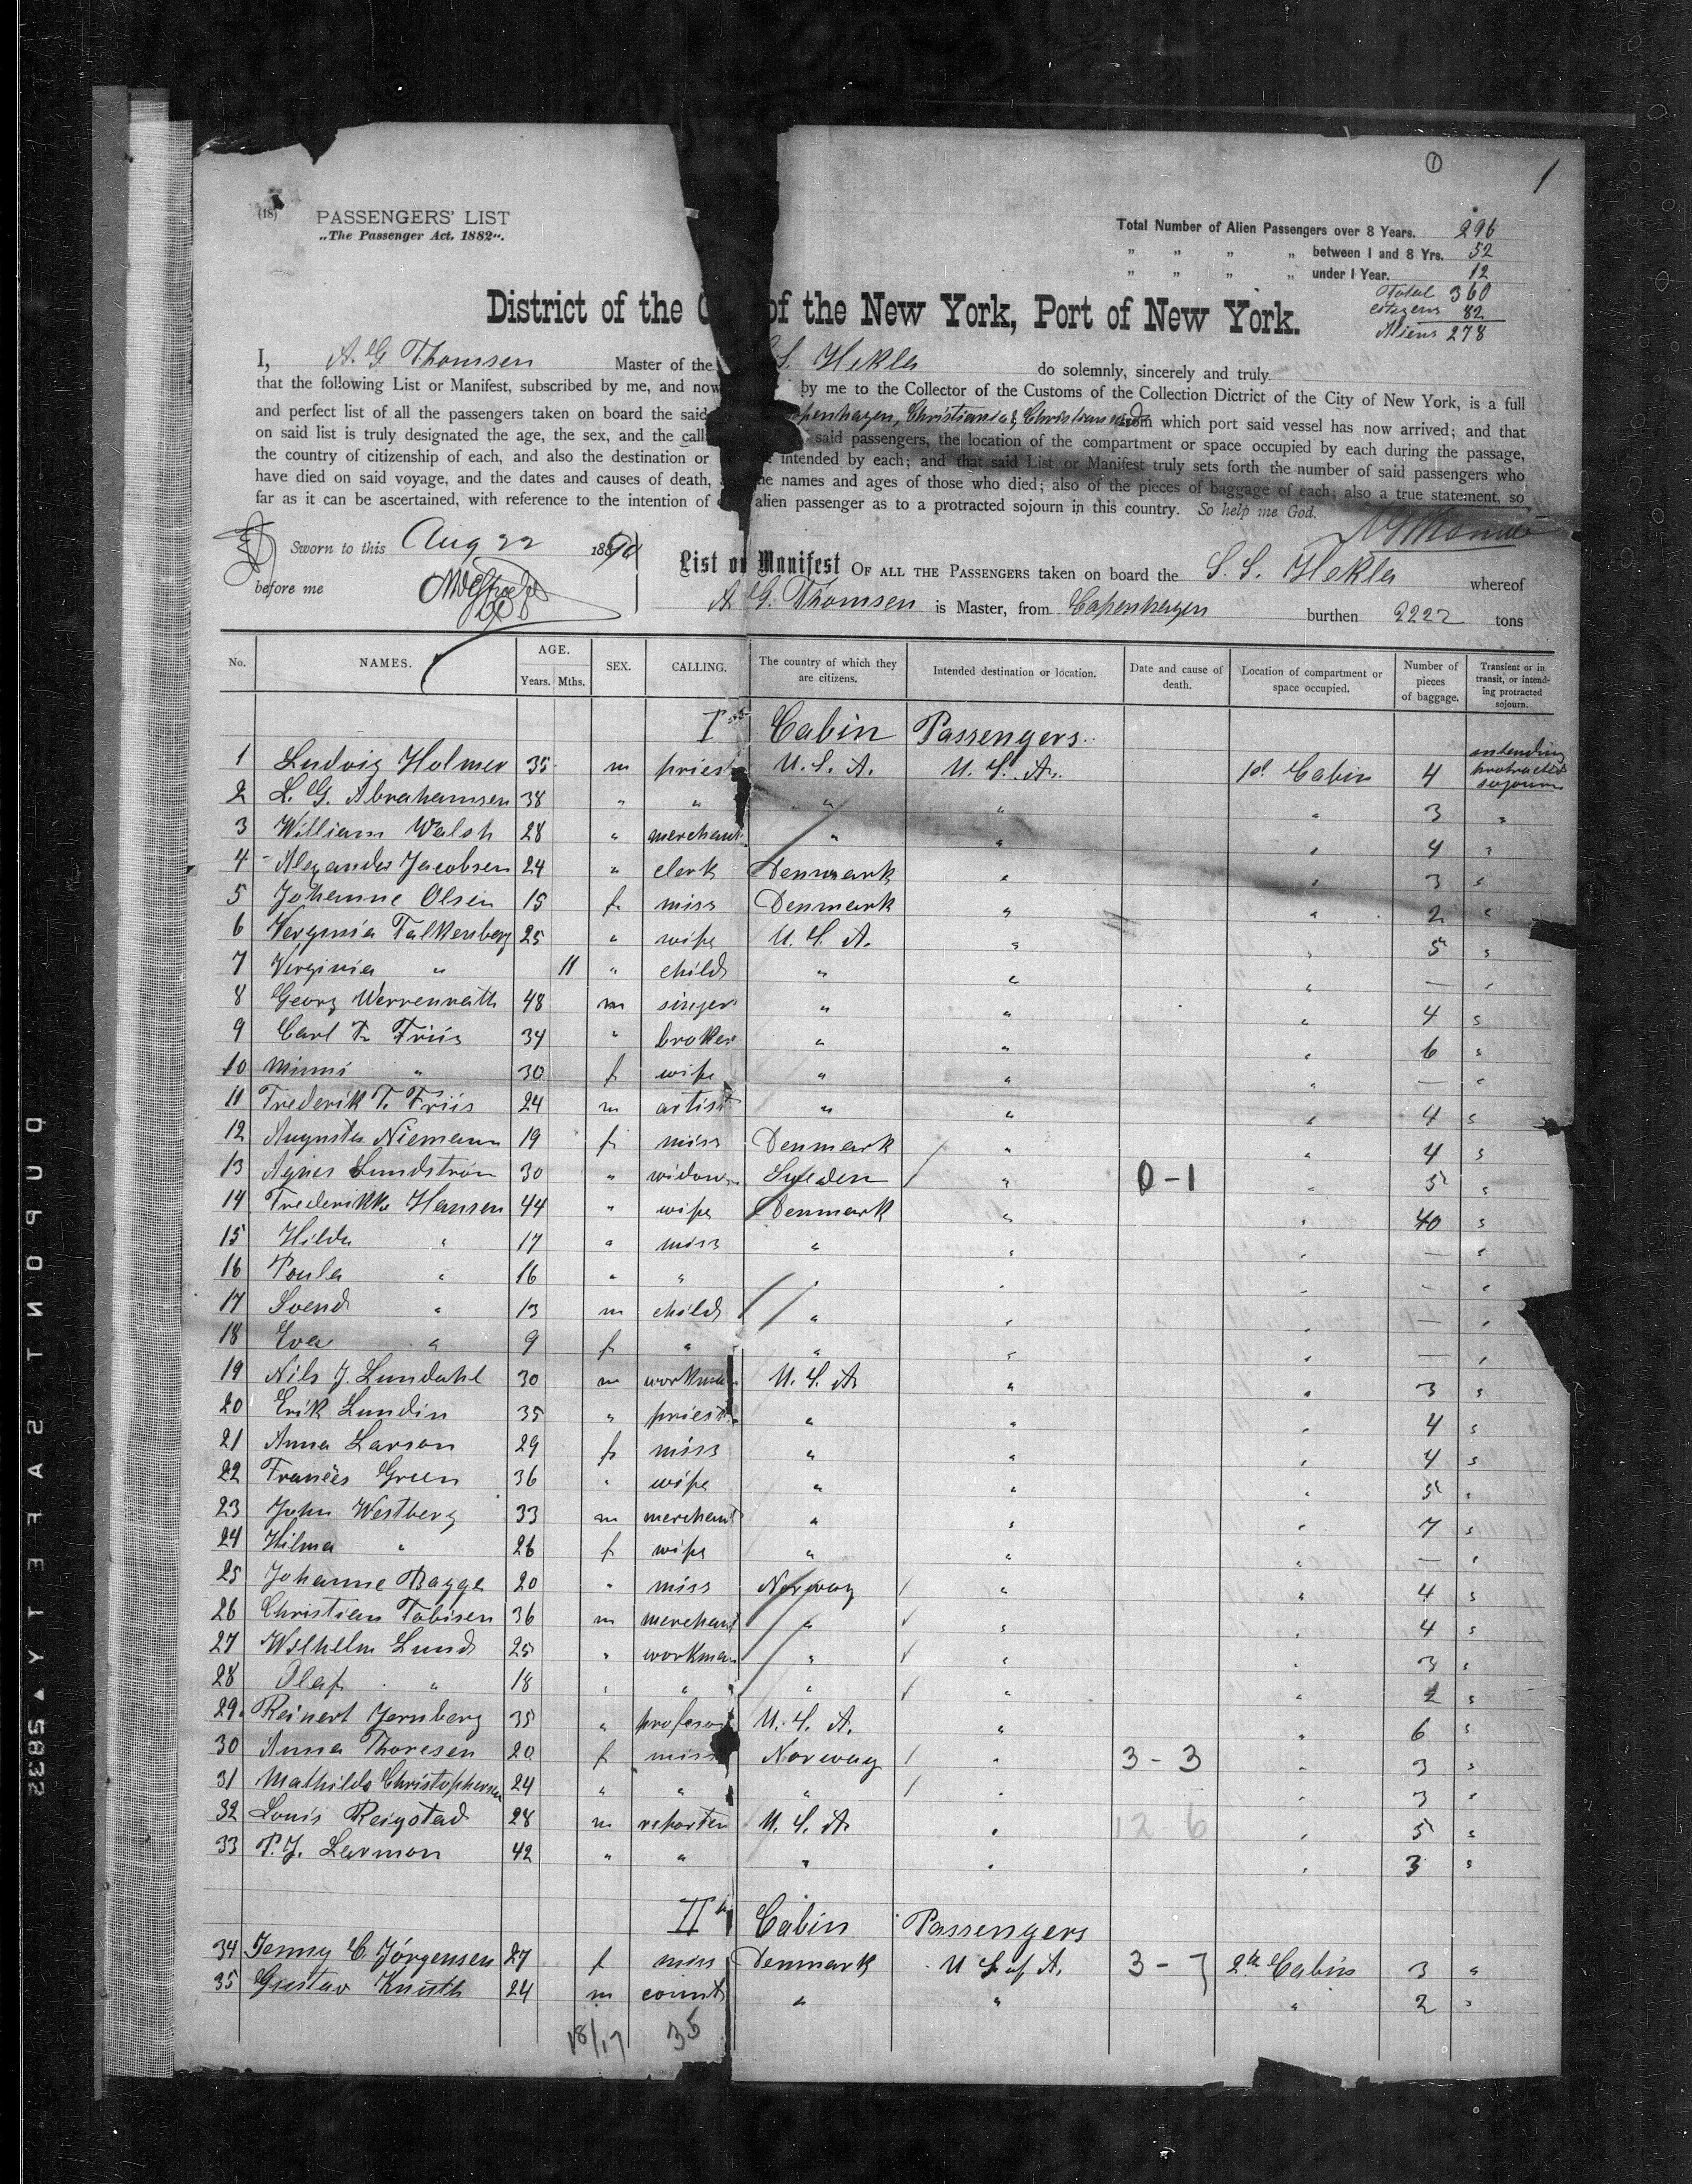 ①
1
(18)
PASSENGERS' LIST
„The Passenger Act, 1882“.
Total Number of Alien Passengers over 8 Years. 296
„ „ „ „ between 1 and 8 Yrs. 52
„ „ „ „ under 1 Year. 12
Total 360
Citizens 82
Aliens 278
District of the C of the New York, Port of New York.
I, A. G Thomsen Master of the S. Hekla do solemnly, sincerely and truly
that the following List or Manifest, subscribed by me, and now by me to the Collector of the Customs of the Collection Dictrict of the City of New York, is a full
and perfect list of all the passengers taken on board the said penhagen, Christiania & Christiansand from which port said vessel has now arrived; and that
on said list is truly designated the age, the sex, and the call said passengers, the location of the compartment or space occupied by each during the passage,
the country of citizenship of each, and also the destination or intended by each; and that said List or Manifest truly sets forth the number of said passengers who
have died on said voyage, and the dates and causes of death, he names and ages of those who died; also of the pieces of baggage of each; also a true statement, so
far as it can be ascertained, with reference to the intention of alien passenger as to a protracted sojourn in this country. So help me God.
Sworn to this Aug 22 1890
before me
List or Manifest OF ALL THE PASSENGERS taken on board the S. S. Hekla whereof
A G. Thomsen is Master, from Copenhagen burthen 2222 tons
No. NAMES. AGE. Years. Mths. SEX. CALLING. The country of which they are citizens. Intended destination or location. Date and cause of death. Location of compartment or space occupied. Number of pieces of baggage. Transient or in transit, or intending protracted sojourn.
Ist Cabin Passengers.
1 Ludvig Holmer 35 m priest U. S. A. U. S. A. 1st Cabin 4 intending protracted sojourn
2 L. G. Abrahamsen 38 " " " " " 3 "
3 William Walsh 28 " merchant " " " 4 "
4 Alexander Jacobsen 24 " clerk Denmark " " 3 "
5 Johanne Olsen 15 f miss Denmark " " 2 "
6 Verginia Falkenberg 25 " wife U. S. A. " " 5 "
7 Verginia " 11 " child " " " — "
8 Georg Werrenrath 48 m singer " " " 4 "
9 Carl F. Friis 34 " broker " " " 6 "
10 Minni " 30 f wife " " " — "
11 Frederik T. Friis 24 m artist " " " 4 "
12 Augusta Niemann 19 f miss Denmark / " " 4 "
13 Agnes Lundström 30 " widow Sweden / " 0-1 " 5 "
14 Frederikke Hansen 44 " wife Denmark " " 40 "
15 Hilda " 17 " miss " " " — "
16 Poula " 16 " " " " " — "
17 Svend " 13 m child " " " — "
18 Eva " 9 f " " " " — "
19 Nils J. Lundahl 30 m workman U. S. A " " 3 "
20 Erik Lundin 35 " priest " " " 4 "
21 Anna Larson 29 f miss " " " 4 "
22 Frances Green 36 " wife " " " 5 "
23 John Westberg 33 m merchant " " " 7 "
24 Hilma " 26 f wife " " " — "
25 Johanne Bagge 20 " miss Norway / " " 4 "
26 Christian Tobisen 36 m merchant " / " " 4 "
27 Wilhelm Lund 25 " workman " / " " 3 "
28 Olaf " 18 " " " / " " 2 "
29 Reinert Jernberg 35 " profesor U. S. A. " " 6 "
30 Anna Thoresen 20 f miss Norway / " 3-3 " 3 "
31 Mathilde Christophersen 24 " " " / " " 3 "
32 Louis Reigstad 28 m reporter U. S. A " 12 6 " 5 "
33 P. J. Lermon 42 " " " " " 3 "
IInd Cabin Passengers
34 Jenny C. Jörgensen 27 f miss Denmark U S of A. 3-7 2nd Cabin 3 "
35 Gustav Knuth 24 m count " " " 2 "
18/17 35
DUPONT SAFETY ▲ 5832